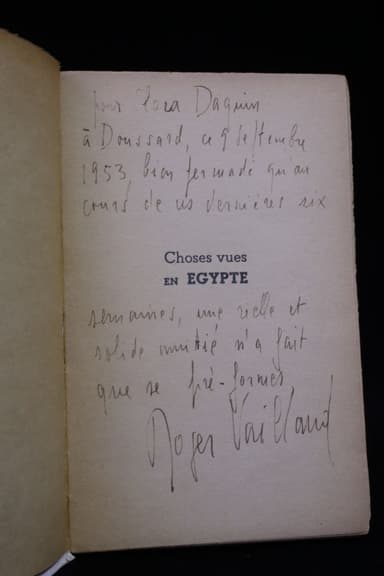 pour Daquin
à Doussard, ce 9 septembre
1953, bien persuadé qu'au
cours de ces dernières six
Choses vues
EN EGYPTE
semaines, une réelle et
solide amitié n'a fait
que se pré-former
Roger Vailland